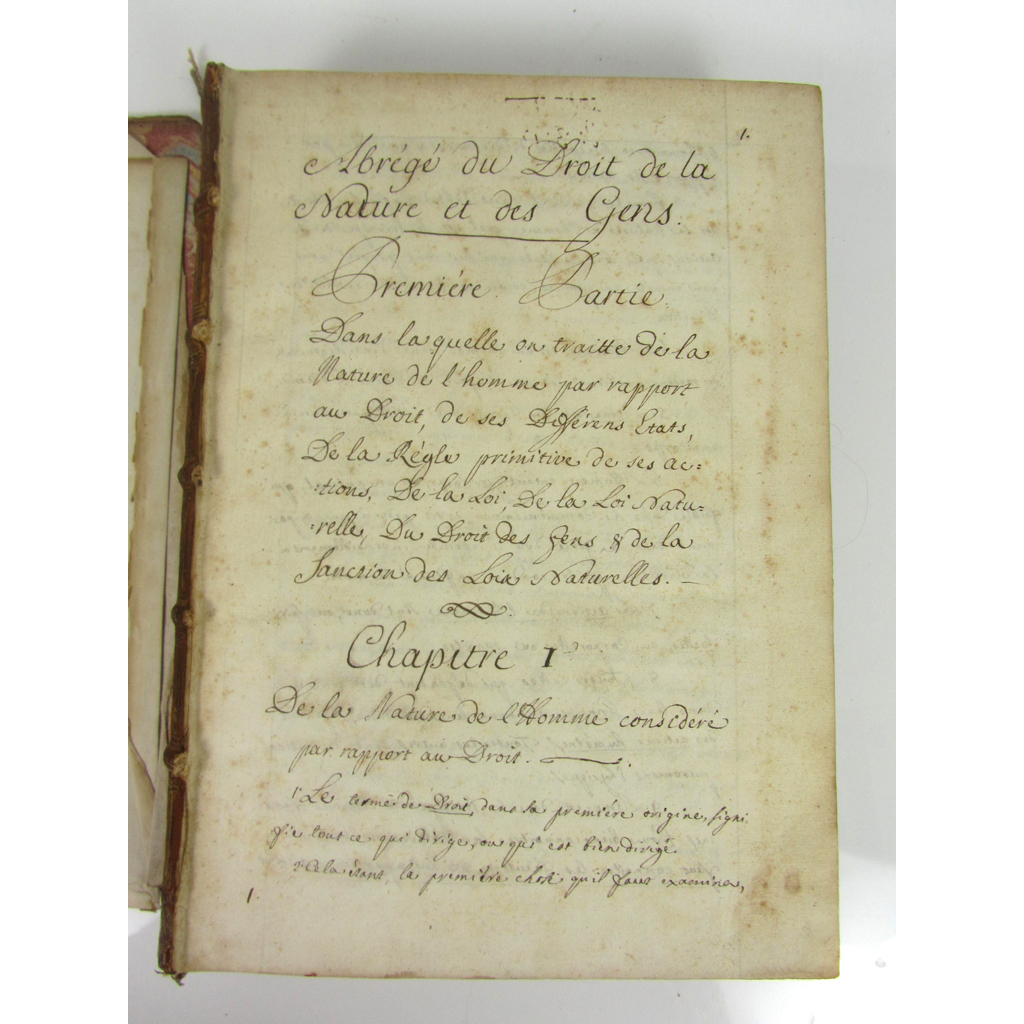 1.
Abrégé du Droit de la
Nature et des Gens.
Premiére Partie.
Dans laquelle on traitte de la
Nature de l'homme par rapport
au Droit, de ses Différens Etats,
De la Régle primitive de ses ac:
:tions, De la Loi, De la Loi Natu-
:relle, Du Droit des Gens, & de la
Sanction des Loix Naturelles. —
Chapitre I
De la Nature de l'Homme considéré
par rapport au Droit.
1° Le terme de Droit, dans sa premiére origine, signi
fie tout ce qui dirige, ou qui est bien dirigé.
2° Cela étant, la premiére chose qu'il faut examiner,
1.